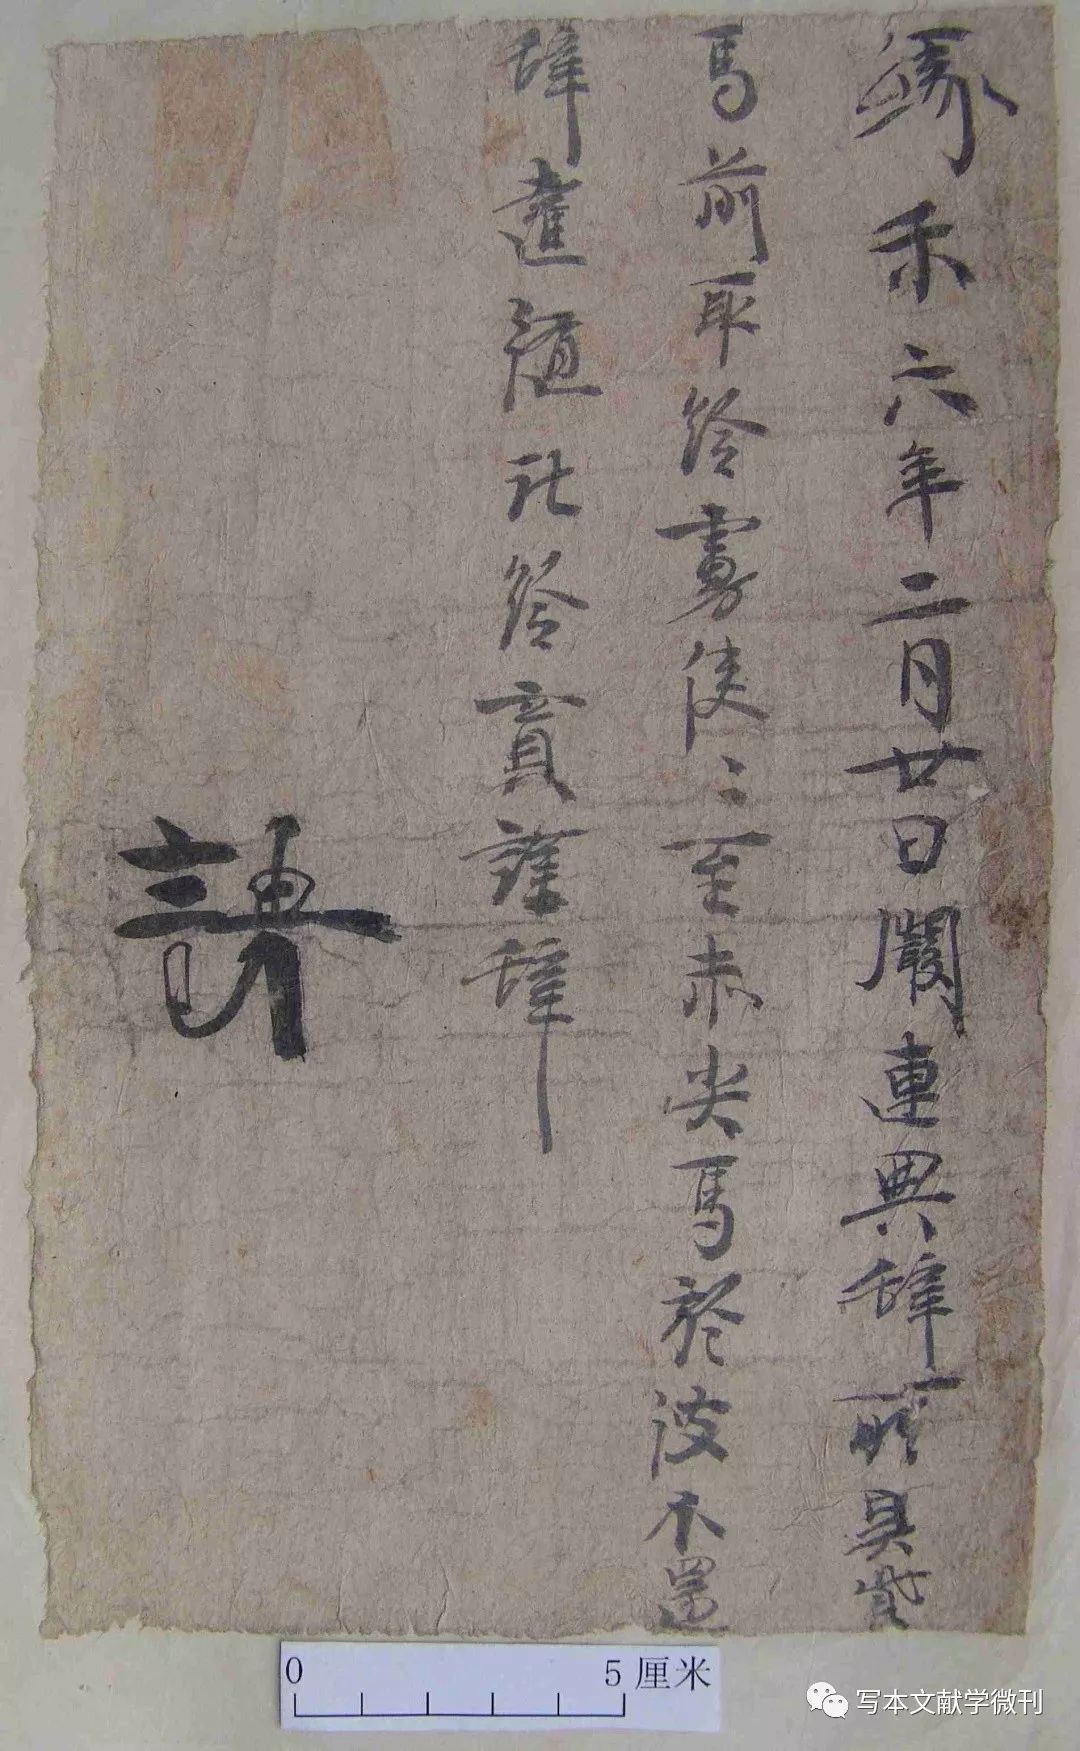 緣禾六年二月廿日闞連興辭所具貲
馬前取給虜使使至赤尖馬於彼不還
辭達隨比給賈謹辭
諆
0 5 厘米
写本文献学微刊